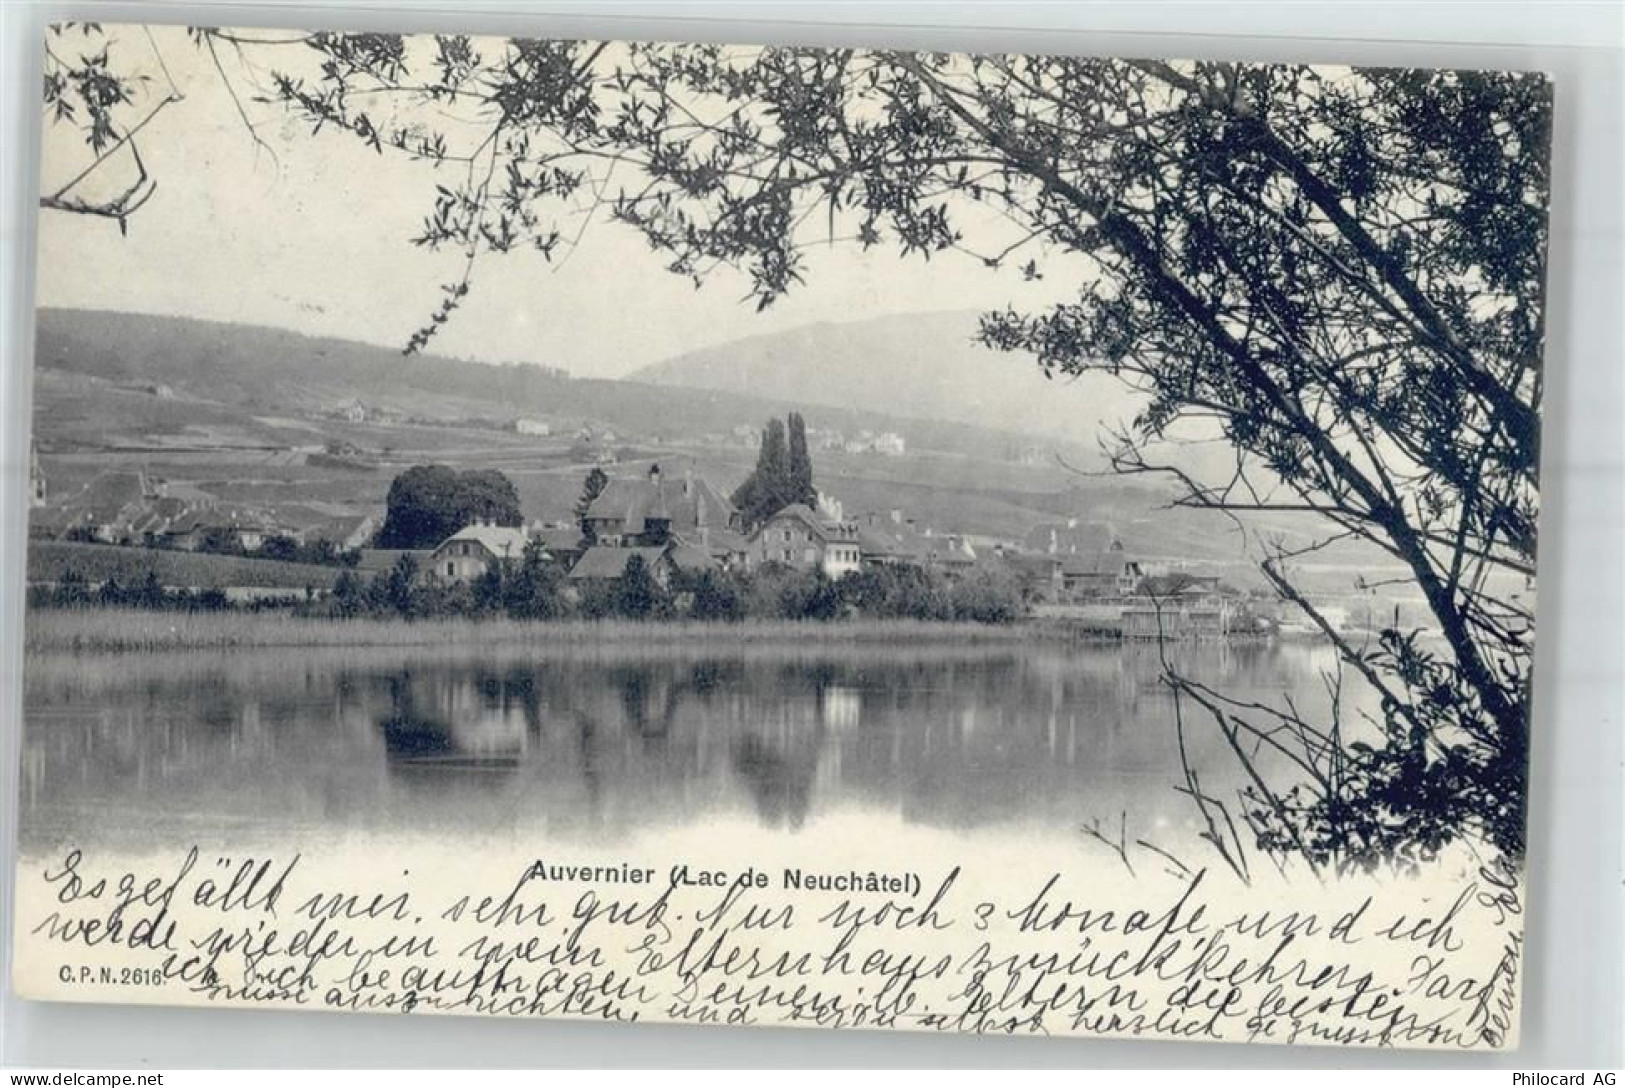 Auvernier (Lac de Neuchâtel)
Es gefällt mir sehr gut. Nur noch 3 Monate und ich
werde wieder in mein Elternhaus zurückkehren. Darf
C.P.N. 2616.
ich Dich beauftragen Deinen lb. Eltern die besten
Grüsse auszurichten, und sei Du selbst herzlich gegrüsst von
Deiner Elsa
Philocard AG